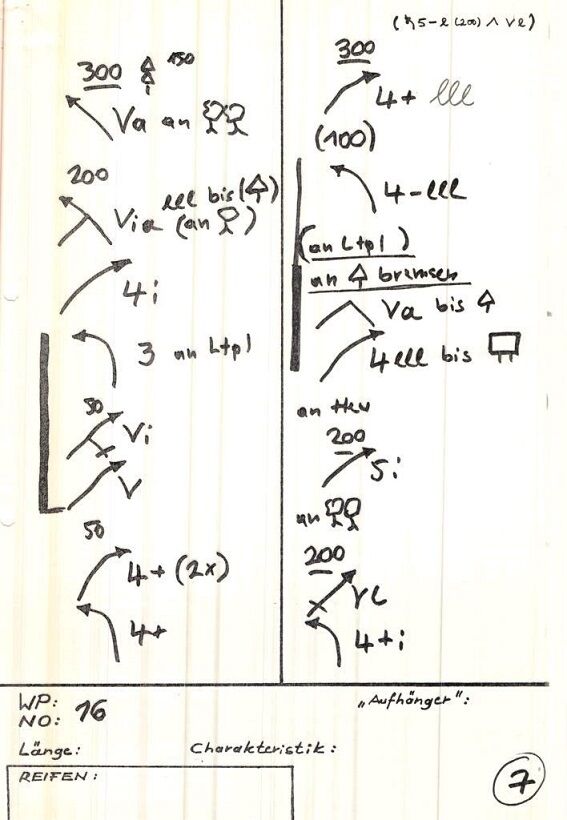 300 150
Va an
200
lll bis ( )
Via (an )
4i
3 an Ltpl
50
Vi
V
50
4+ (2x)
4+
300
4+ lll
(100)
4-lll
(an Ltpl)
an bremsen
Va bis
4lll bis
an
200
5i
an
200
4+i
WP:
NO: 16
"Aufhänger":
Länge: Charakteristik:
REIFEN: 7